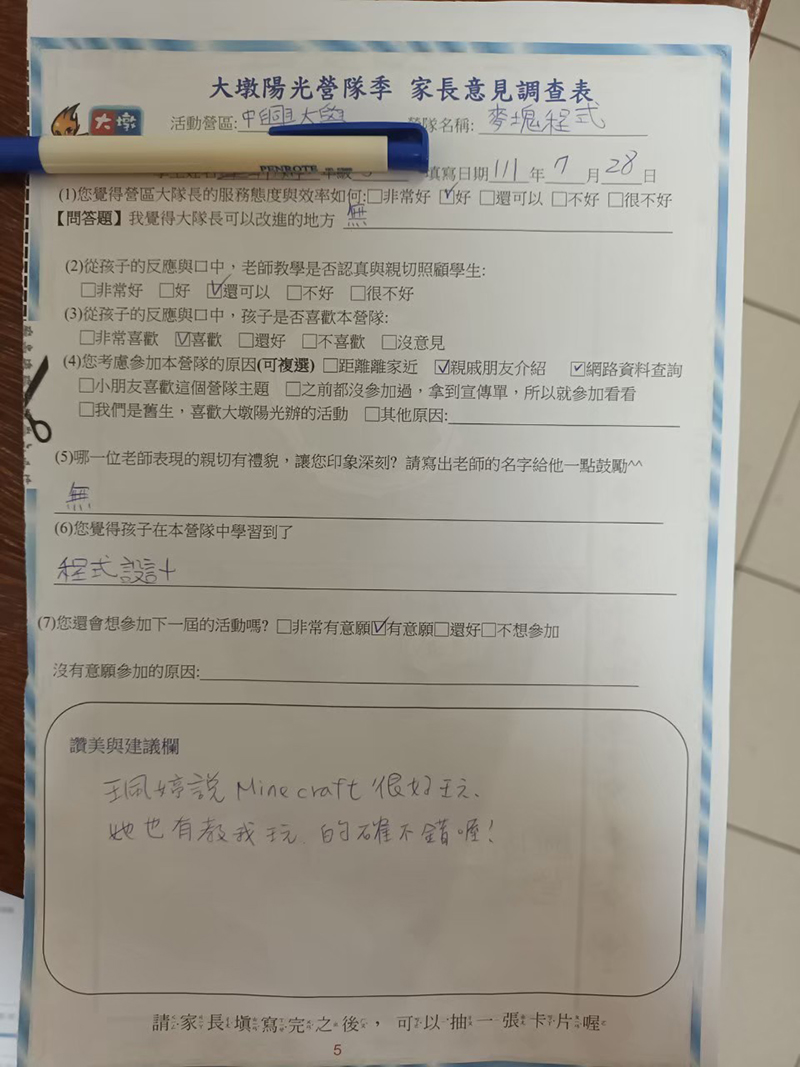 大墩陽光營隊季 家長意見調查表
大墩
活動營區:中國醫大學 營隊名稱: 麥塊程式
PENROTE
填寫日期111年7月28日
(1)您覺得營區大隊長的服務態度與效率如何:□非常好 ☑好 □還可以 □不好 □很不好
【問答題】我覺得大隊長可以改進的地方 無
(2)從孩子的反應與口中，老師教學是否認真與親切照顧學生:
□非常好 □好 ☑還可以 □不好 □很不好
(3)從孩子的反應與口中，孩子是否喜歡本營隊:
□非常喜歡 ☑喜歡 □還好 □不喜歡 □沒意見
(4)您考慮參加本營隊的原因(可複選) □距離離家近 ☑親戚朋友介紹 ☑網路資料查詢
□小朋友喜歡這個營隊主題 □之前都沒參加過，拿到宣傳單，所以就參加看看
□我們是舊生，喜歡大墩陽光辦的活動 □其他原因:
(5)哪一位老師表現的親切有禮貌，讓您印象深刻? 請寫出老師的名字給他一點鼓勵^^
無
(6)您覺得孩子在本營隊中學習到了
程式設計
(7)您還會想參加下一屆的活動嗎? □非常有意願☑有意願□還好□不想參加
沒有意願參加的原因:
讚美與建議欄
珮婷說 Minecraft 很好玩、
她也有教我玩、的確不錯喔！
請家長填寫完之後，可以抽一張卡片喔
5